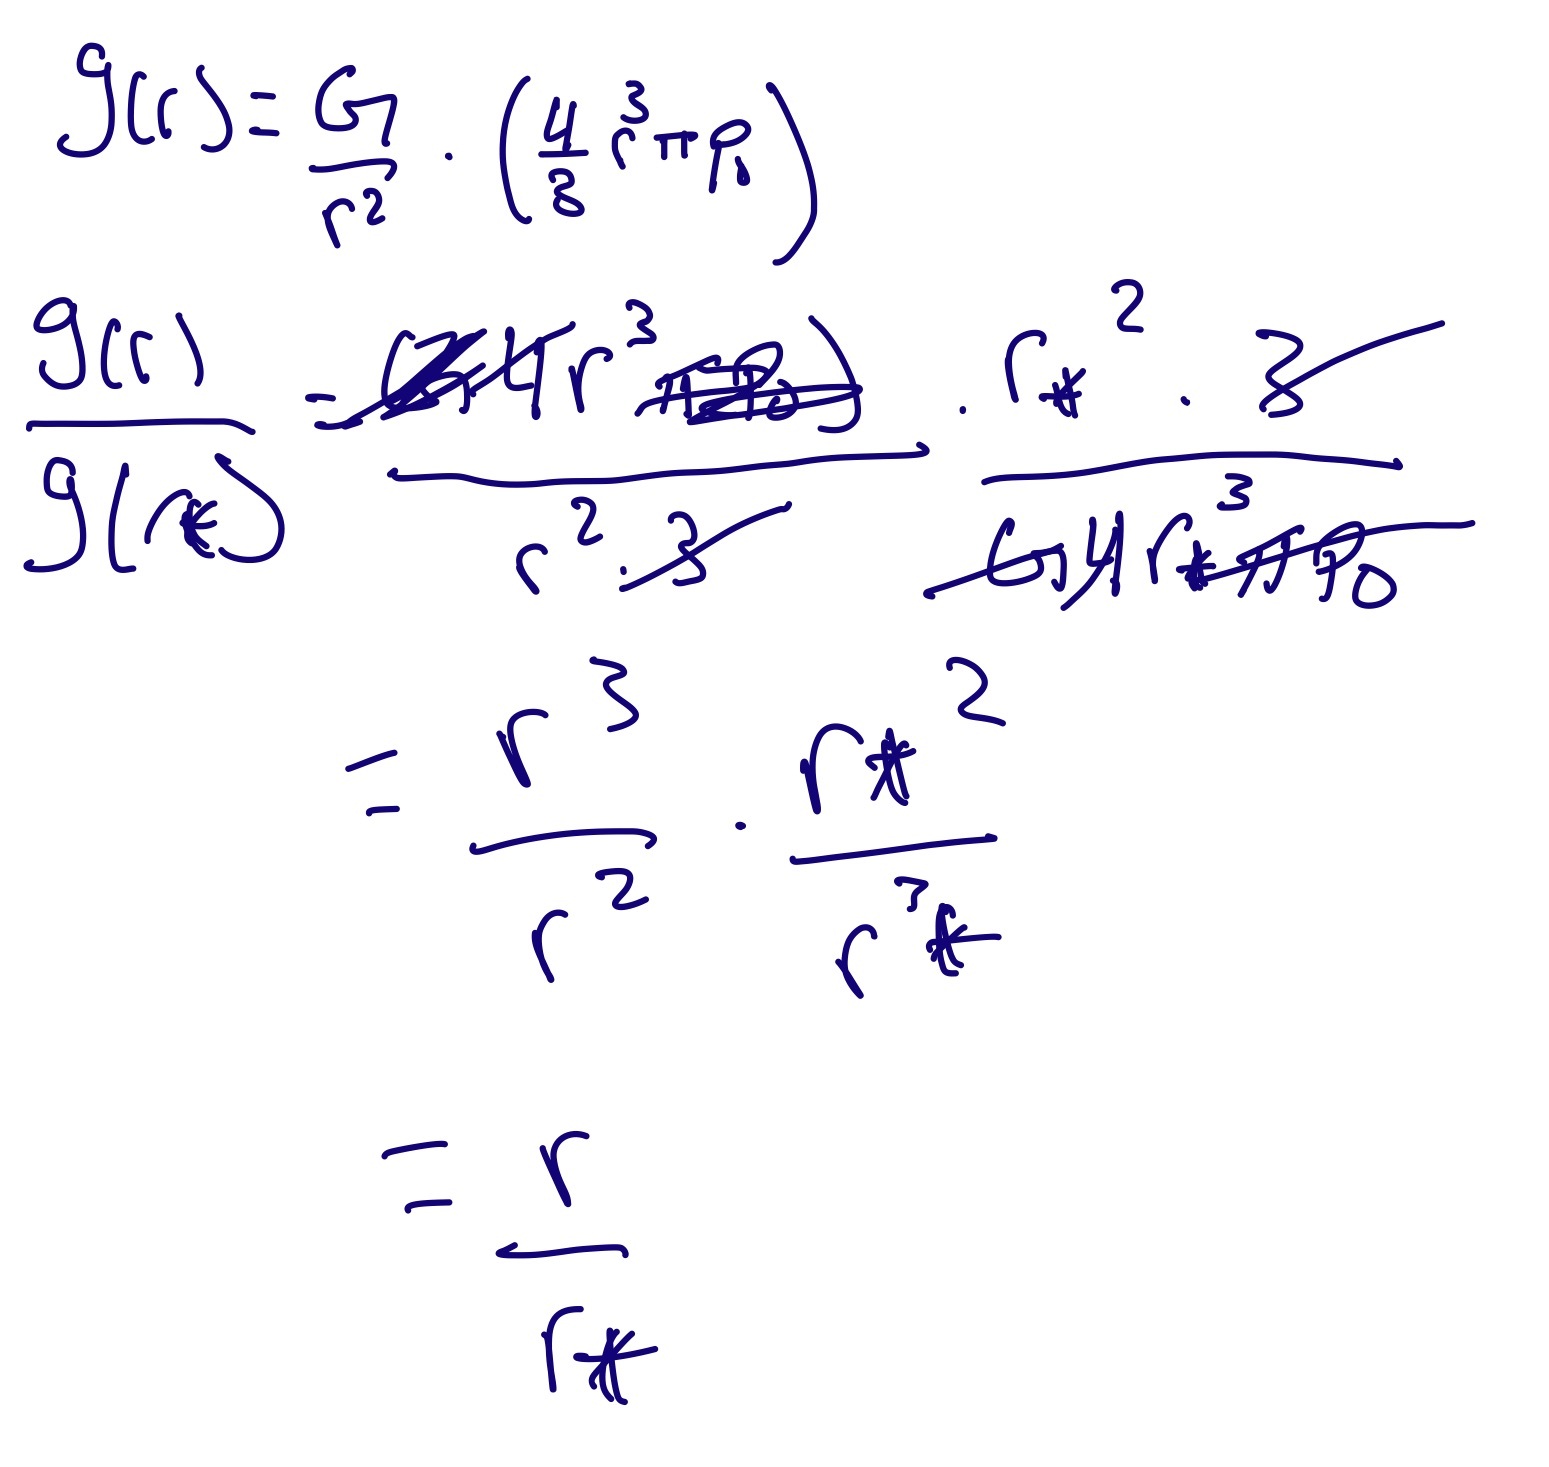 g(r) = G/r² · (4/3 r³ π ρ₀)
g(r)/g(r*) = (G 4 r³ π ρ₀)/(r² · 3) · (r*² · 3)/(G 4 r*³ π ρ₀)
= r³/r² · r*²/r³*
= r/r*